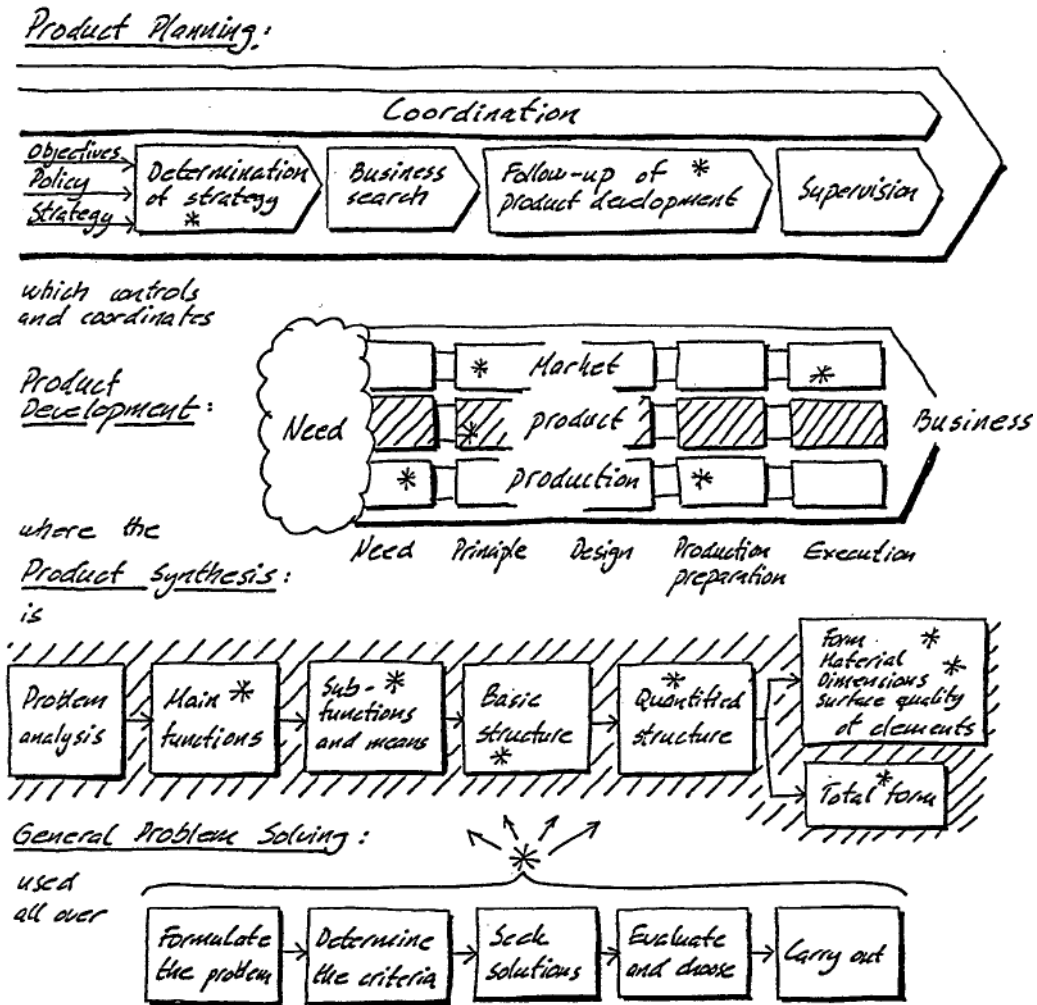 Product Planning:
Coordination
Objectives
Policy
Strategy
Determination
of strategy
*
Business
search
Follow-up of *
product development
Supervision
which controls
and coordinates
Product
Development:
Need
* Market *
product
*
* production *
Business
Need Principle Design Production Execution
preparation
where the
Product Synthesis:
is
Problem
analysis
Main *
functions
Sub- *
functions
and means
Basic
structure
*
*
Quantified
structure
Form *
Material
Dimensions *
Surface quality
of elements
*
Total form
General Problem Solving:
used
all over
*
Formulate
the problem
Determine
the criteria
Seek
solutions
Evaluate
and choose
Carry out